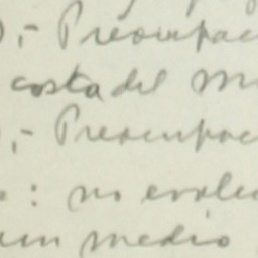 ),- Preocupac
costa del M
),- Preocupac
: no evolu
un medio